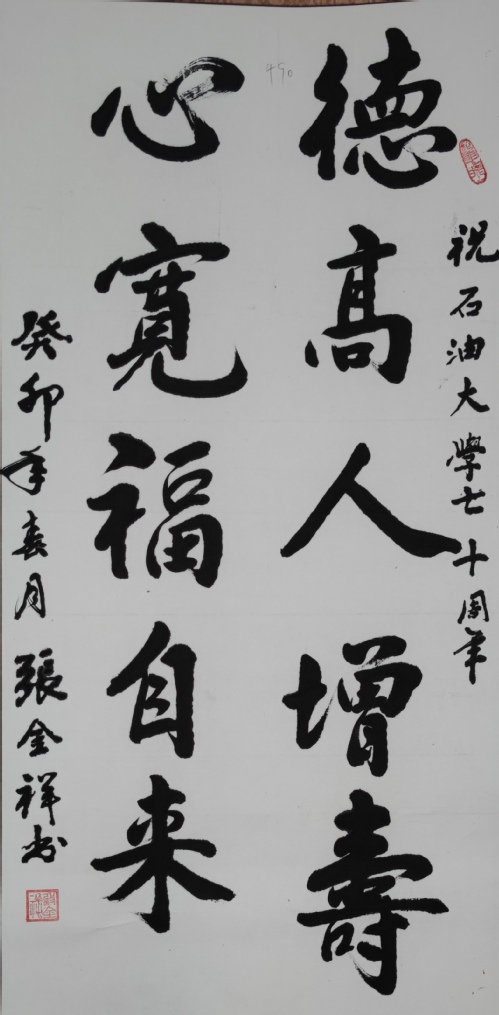 祝石油大學七十周年
德高人增壽
心寬福自来
癸卯年春月張金祥书
490